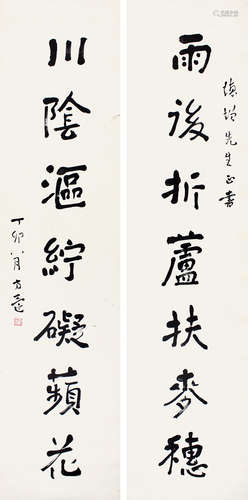 雨後折蘆扶麥穗
先生正書
川陰漚紵礙蘋花
丁卯八月